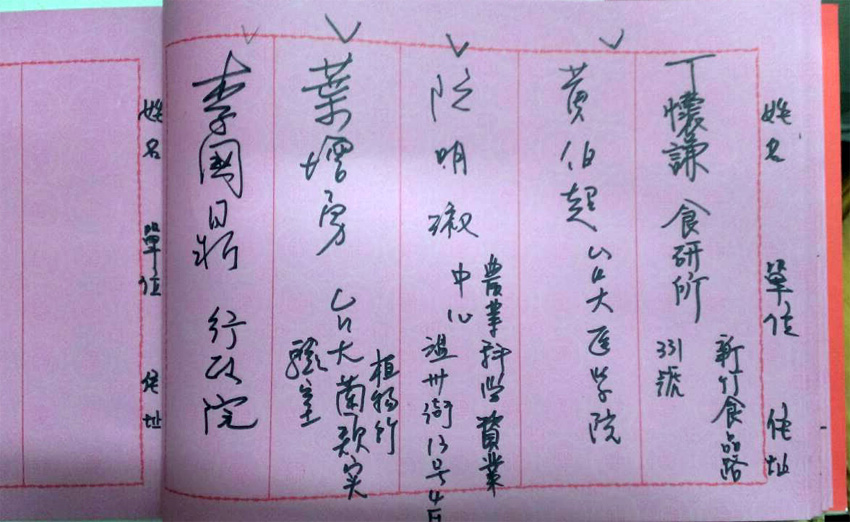 姓名 單位 住址
丁懷謙 食研所 新竹食品路
331號
黃伯超 台大医学院
阮明淑 農業科學資業
中心 溫州街13号4F
葉增勇 台大植物所
菌類实
驗室
李國 行政院
姓名 單位 住址